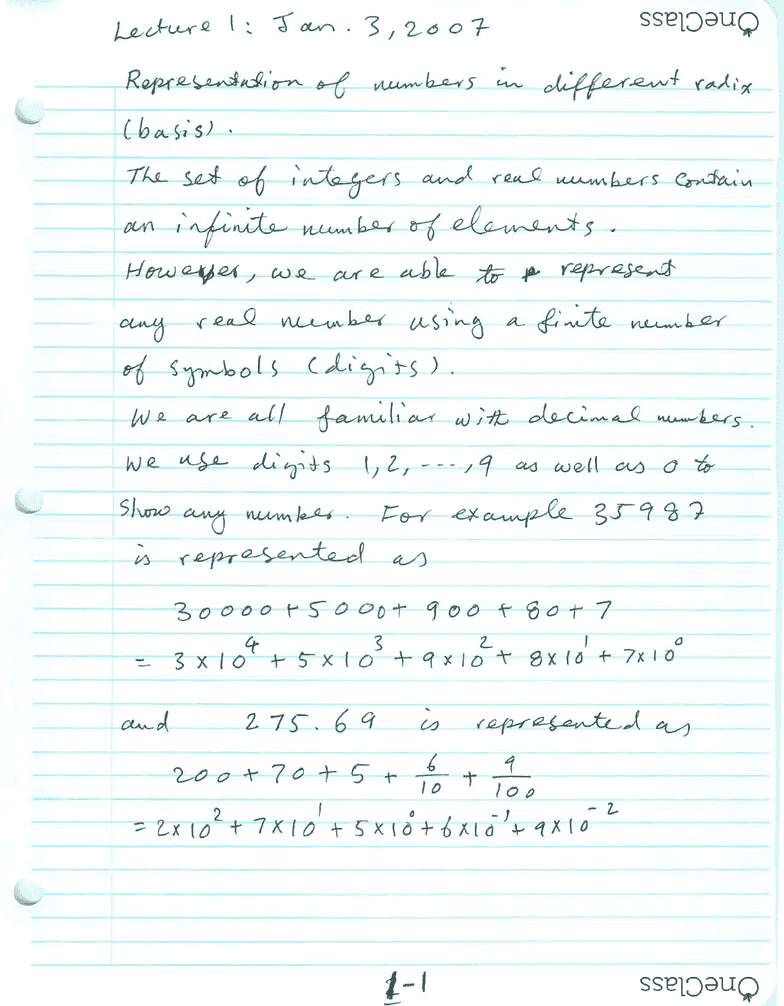 OneClass
Lecture 1: Jan. 3, 2007
Representation of numbers in different radix
(basis).
The set of integers and real numbers contain
an infinite number of elements.
However, we are able to represent
any real number using a finite number
of symbols (digits).
We are all familiar with decimal numbers.
We use digits 1, 2, ---, 9 as well as 0 to
show any number. For example 35987
is represented as
30000 + 5000 + 900 + 80 + 7
= 3 × 10⁴ + 5 × 10³ + 9 × 10² + 8 × 10¹ + 7 × 10⁰
and 275.69 is represented as
200 + 70 + 5 + 6/10 + 9/100
= 2 × 10² + 7 × 10¹ + 5 × 10⁰ + 6 × 10⁻¹ + 9 × 10⁻²
1-1
OneClass